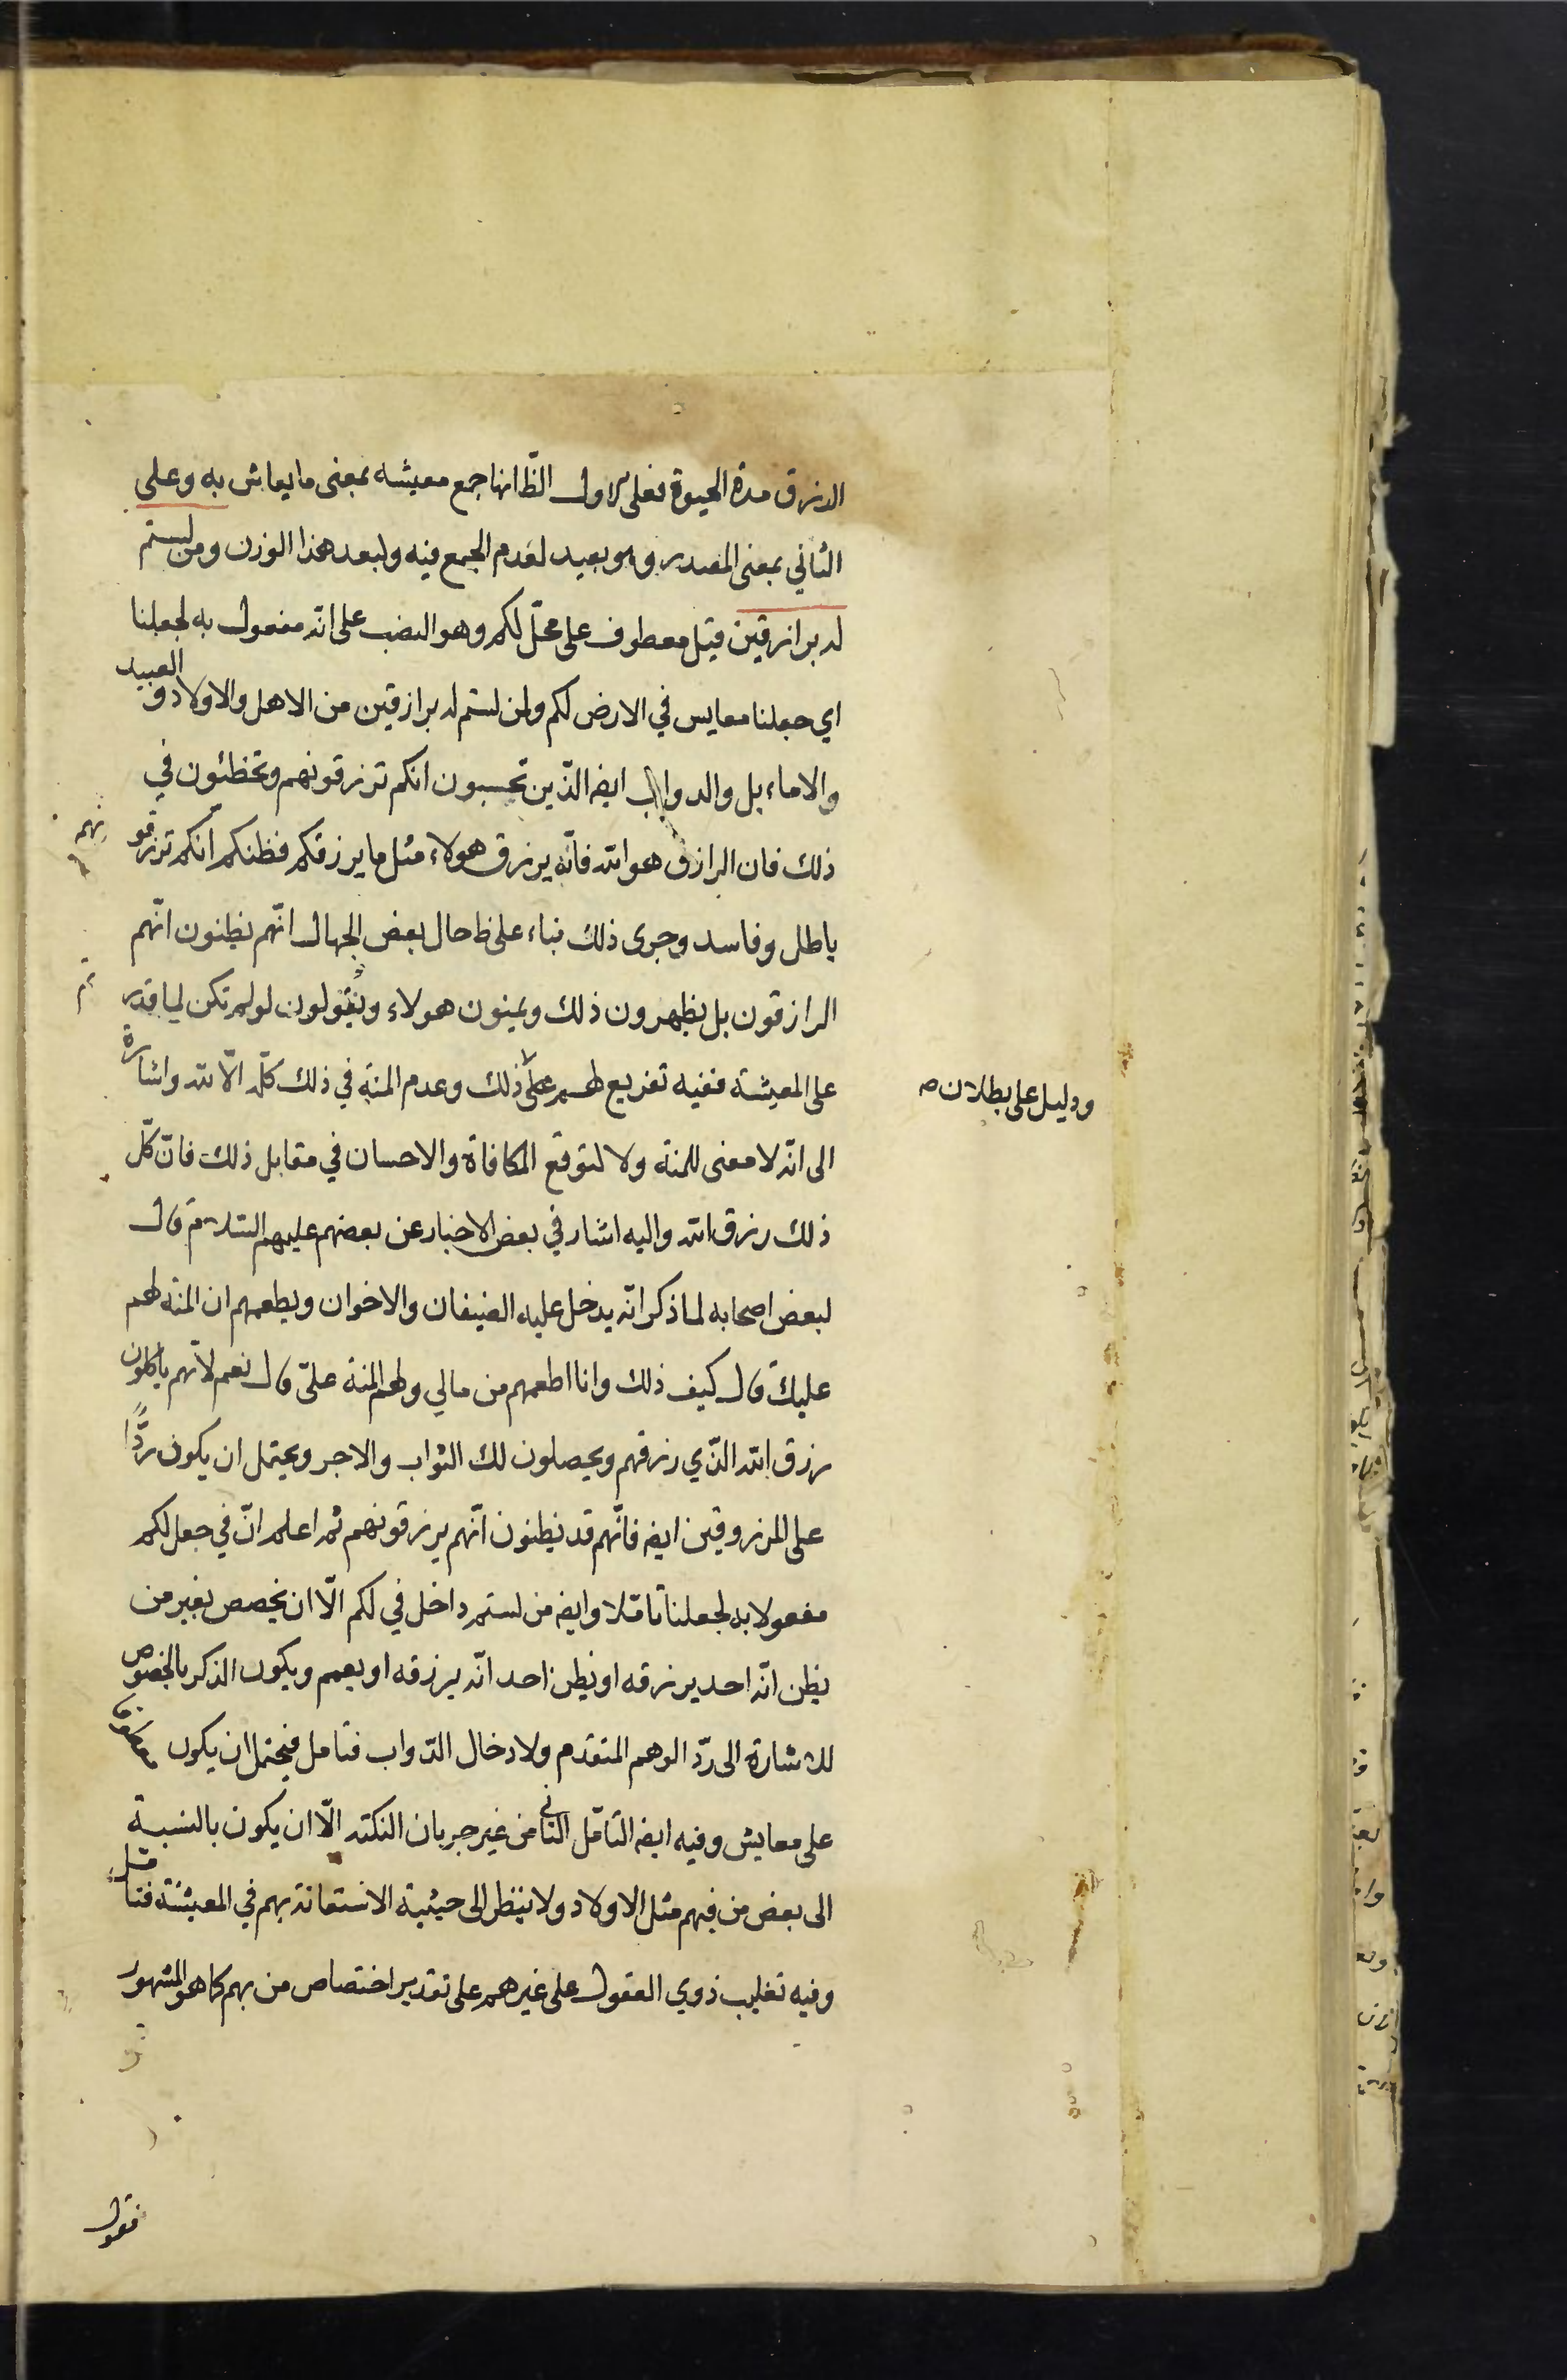 الرزق مدة الحيوة فعلى الاول الظ انها جمع معيشه بمعنى ما يعاش به وعلى
الثاني بمعنى المصدر وهو بعيد لعدم الجمع فيه ولبعد هذا الوزن ومن لستم
له برازقين قيل معطوف على محل لكم وهو النصب على انه مفعول به لجعلنا
اي جعلنا معايش في الارض لكم ولمن لستم له برازقين من الاهل والاولاد و العبيد
والاماء بل والدواب ايضا الذين تحسبون انكم ترزقونهم وتخطئون في
ذلك فان الرازق هو الله فانه يرزق هولاء مثل ما يرزقكم فظنكم انكم ترزقونهم
باطل وفاسد وجرى ذلك بناء على ظ حال بعض الجهال انهم يظنون انهم
الرازقون بل يظهرون ذلك ويمنون هولاء ويقولون لو لم تكن لما قدرتم
على المعيشة ففيه تفريع لهم على ذلك وعدم المنة في ذلك كله الا لله واشارة
ودليل على بطلان
الى انه لا معنى للمنة ولا لتوقع المكافاة والاحسان في مقابل ذلك فان كل
ذلك رزق الله واليه اشار في بعض الاخبار عن بعضهم عليهم السلام قال
لبعض اصحابه لما ذكر انه يدخل عليه الضيفان والاخوان ويطعمهم ان المنة لهم
عليك قال كيف ذلك وانا اطعمهم من مالي ولهم المنة علي قال نعم لانهم ياكلون
رزق الله الذي رزقهم ويحصلون لك الثواب والاجر ويحتمل ان يكون ردا
على المرزوقين ايضا فانهم قد يظنون انهم يرزقونهم ثم اعلم ان في جعل لكم
مفعولا به لجعلنا تاملا وايضا من لستم داخل في لكم الا ان يخصص بغير من
يظن انه احد يرزقه او يظن احد انه يرزقه او يعمم ويكون الذكر بالخصوص
للاشارة الى رد الوهم المتقدم ولادخال الدواب فتامل فيحتمل ان يكون
على معايش وفيه ايضا التامل الثاني من غير جريان النكته الا ان يكون بالنسبة
الى بعض من فيهم مثل الاولاد ولا ينظر الى حيثية الاستعانة بهم في المعيشة فتامل
وفيه تغليب ذوي العقول على غيرهم على تقدير اختصاص من بهم كما هو المشهور
فقول